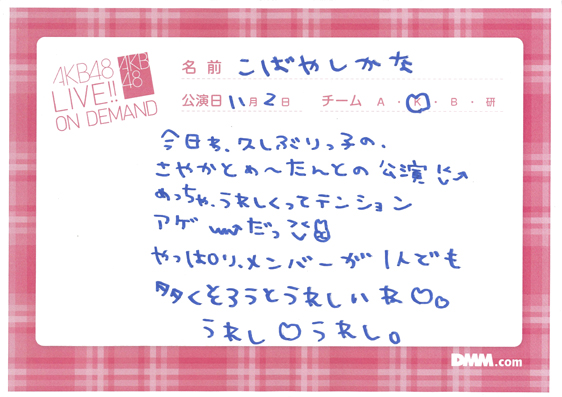 AKB48
LIVE!!
ON DEMAND
AKB
48
名前 こばやしかな
公演日 11月2日 チーム A・K・B・研
今日も、久しぶりっ子の、
さやかとめ〜たんとの公演
めっちゃ、うれしくってテンション
アゲ だっ
やっぱり、メンバーが1人でも
多くそろうとうれしいネ♡。
うれし♡うれし。
DMM.com